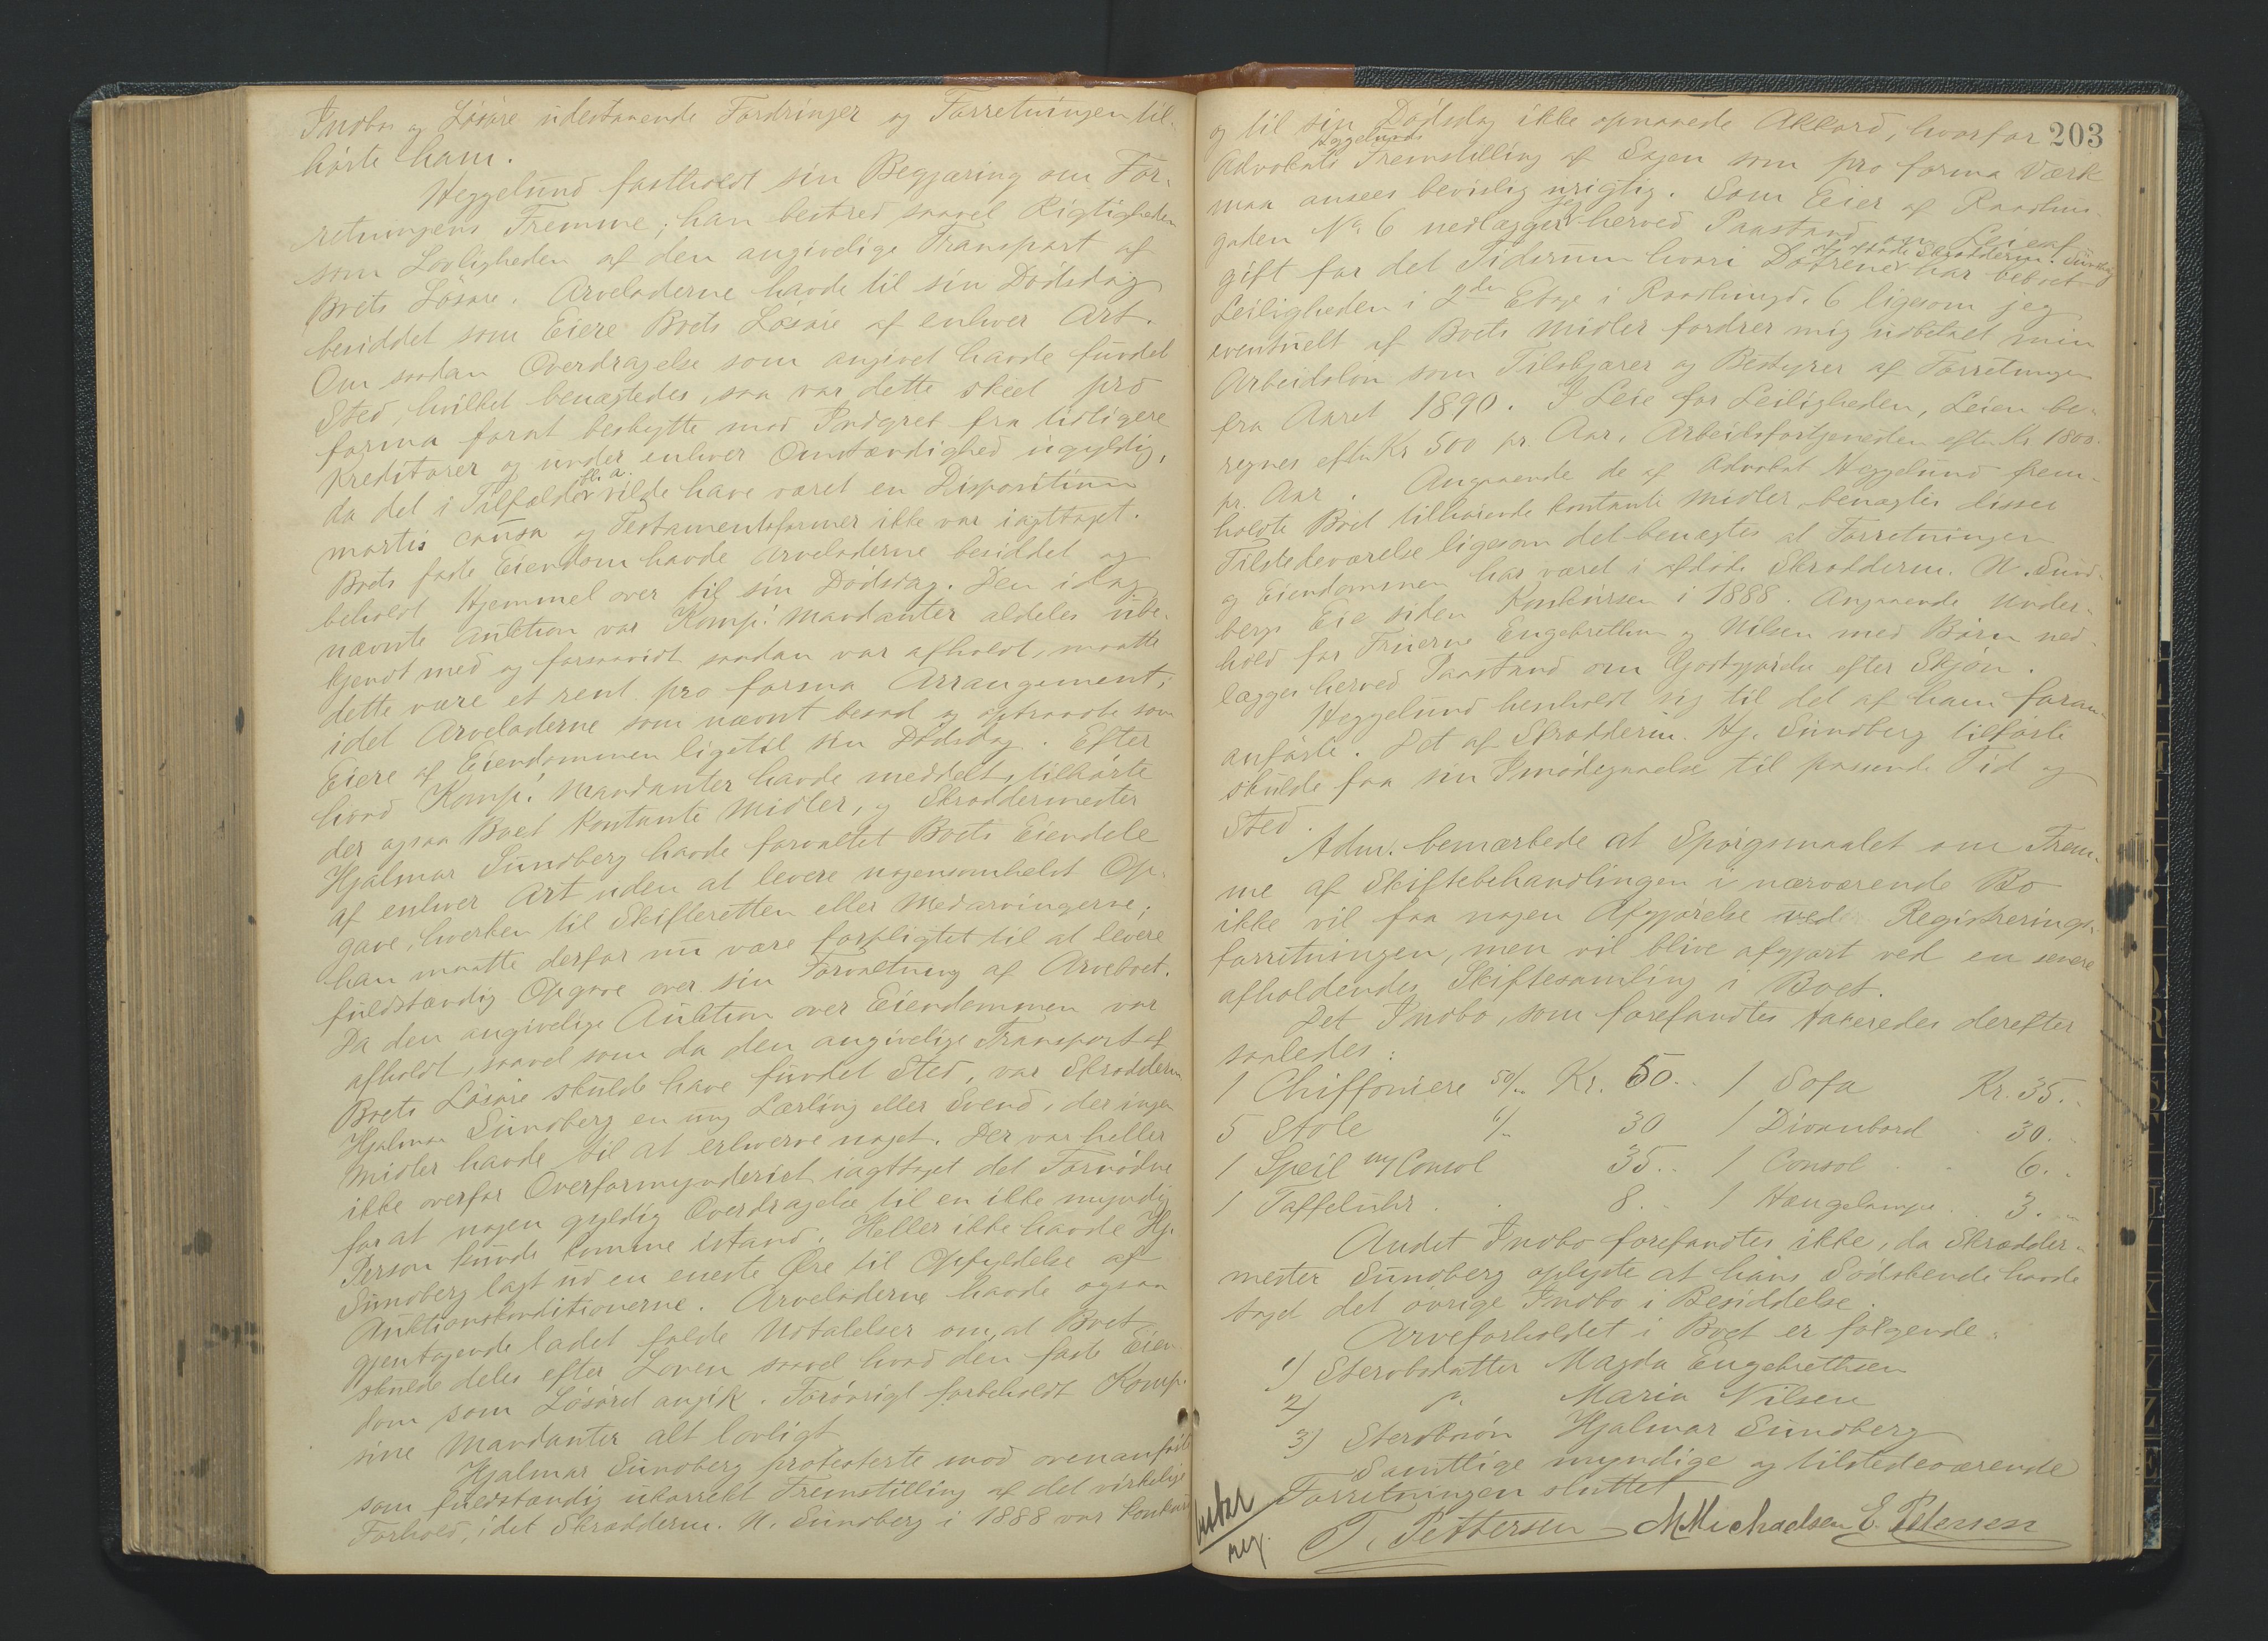 Indbo og Løsøre udestaaende Fordringer og Forretningen til-
hørte ham.
Heggelund fastholdt sin Begjæring om For-
retningens Fremme; han bestred saavel Rigtigheden
som Lovligheden af den angivelige Transport af
Boets Løsøre. Arveladerne havde til sin Dødsdag
besiddet som Eiere Boets Løsøre af enhver Art.
Om saadan Overdragelse som angivet havde fundet
Sted, hvilket benægtedes, saa var dette skeet pro
forma forat beskytte mod Indgreb fra tidligere
Kreditorer og under enhver Omstændighed ugyldig,
da det i Tilfælde bl. a. vilde have været en Disposition
mortis causa og Testamentsformer ikke var iagttaget.
Boets faste Eiendom havde Arveladerne besiddet og
beholdt Hjemmel over til sin Dødsdag. Den idag
nævnte Auktion var Komp.s Mandanter aldeles ube-
kjendt med og forsaavidt saadan var afholdt, maatte
dette være et rent pro forma Arrangement,
idet Arveladerne som nævnt besad og optraadte som
Eiere af Eiendommen ligetil sin Dødsdag. Efter
hvad Komp.s Mandanter havde meddelt, tilhørte
der ogsaa Boet Kontante Midler, og Skræddermester
Hjalmar Sundberg havde forvaltet Boets Eiendele
af enhver Art uden at levere nogensomhelst Op-
gave, hverken til Skifteretten eller Medarvingerne;
han maatte derfor nu være forpligtet til at levere
fuldstændig Opgave over sin Forvaltning af Arveboet.
Da den angivelige Auktion over Eiendommen var
afholdt, saavel som da den angivelige Transport af
Boets Løsøre skulde have fundet Sted, var Skrædderm
Hjalmar Sundberg en ung Lærling eller Svend, der ingen
Midler havde til at erhverve noget. Der var heller
ikke overfor Overformynderiet iagttaget det Fornødne
for at nogen gyldig Overdragelse til en ikke myndig
Person kunde komme istand. Heller ikke havde Hj.
Sundberg lagt ud en eneste Øre til Opfyldelse af
Auktionskonditionerne. Arveladerne havde ogsaa
gjentagende ladet falde Udtalelser om, at Boet
skulde deles efter Loven saavel hvad den faste Eien-
dom som Løsøret angik. Forøvrigt forbeholdt Komp.
sine Mandanter alt lovligt.
Hjalmar Sundberg protesterte mod ovenanførte
som fuldstændig ukorrekt Fremstilling af det virkelige
Forhold, idet Skrædderm. N. Sundberg i 1888 var konkurs
203
og til sin Dødsdag ikke opnaaede Akkord, hvorfor
Advokat Heggelunds Fremstilling af Sagen som pro forma Værk
maa ansees bevislig urigtig. Som Eier af Raadhus-
gaden No. 6 nedlægger jeg herved Paastand om Leieaf-
gift for det Tidsrum hvori Døtrene af afdøde Skrædderm. Sundberg har beboet
Leiligheden i 2den Etage i Raadhusgd. 6 ligesom jeg
eventuelt af Boets Midler fordrer mig udbetalt min
Arbeidsløn som Tilskjærer og Bestyrer af Forretningen
fra Aaret 1890. I Leie for Leiligheden, Leien be-
regnes efter Kr 500 pr. Aar, Arbeidsfortjenesten efter Kr 1800.
pr. Aar. Angaaende de af Advokat Heggelund frem-
holdte Boet tilhørende kontante Midler benægtes disses
Tilstedeværelse ligesom det benægtes at Forretningen
og Eiendommen har været i afdøde Skrædderm. N. Sund-
bergs Eie siden Konkursen i 1888. Angaaende Under-
hold for Fruerne Engebrethsen og Nilsen med Børn ned-
lægges herved Paastand om Godtgjørelse efter Skjøn.
Heggelund henholdt sig til det af ham foran
anførte. Det af Skrædderm. Hj. Sundberg tilførte
skulde faa sin Imødegaaelse til passende Tid og
Sted.
Adm. bemærkede at Spørgsmaalet om Frem-
me af Skiftebehandlingen i nærværende Bo
ikke vil faa nogen Afgjørelse ved Registrerings-
forretningen, men vil blive afgjort ved en senere
afholdendes Skiftesamling i Boet.
Det Indbo, som forefandtes taxeredes derefter
saaledes:
1 Chiffoniere 50/.. Kr. 50.. 1 Sofa Kr. 35..
5 Stole 6/.. 30 1 Divanbord 30..
1 Speil m/Consol 35.. 1 Consol 6..
1 Taffeluhr 8.. 1 Hængelampe 3..
Andet Indbo forefandtes ikke, da Skrædder-
mester Sundberg oplyste at hans Sødskende havde
taget det øvrige Indbo i Besiddelse.
Arveforholdet i Boet er følgende:
1) Sterbsdatter Magda Engebrethsen
2) " Maria Nilsen
3) Sterbsøn Hjalmar Sundberg
Samtlige myndige og tilstedeværende
Forretningen sluttet
T. Pettersen M Michaelsen E. Petersen
reg.